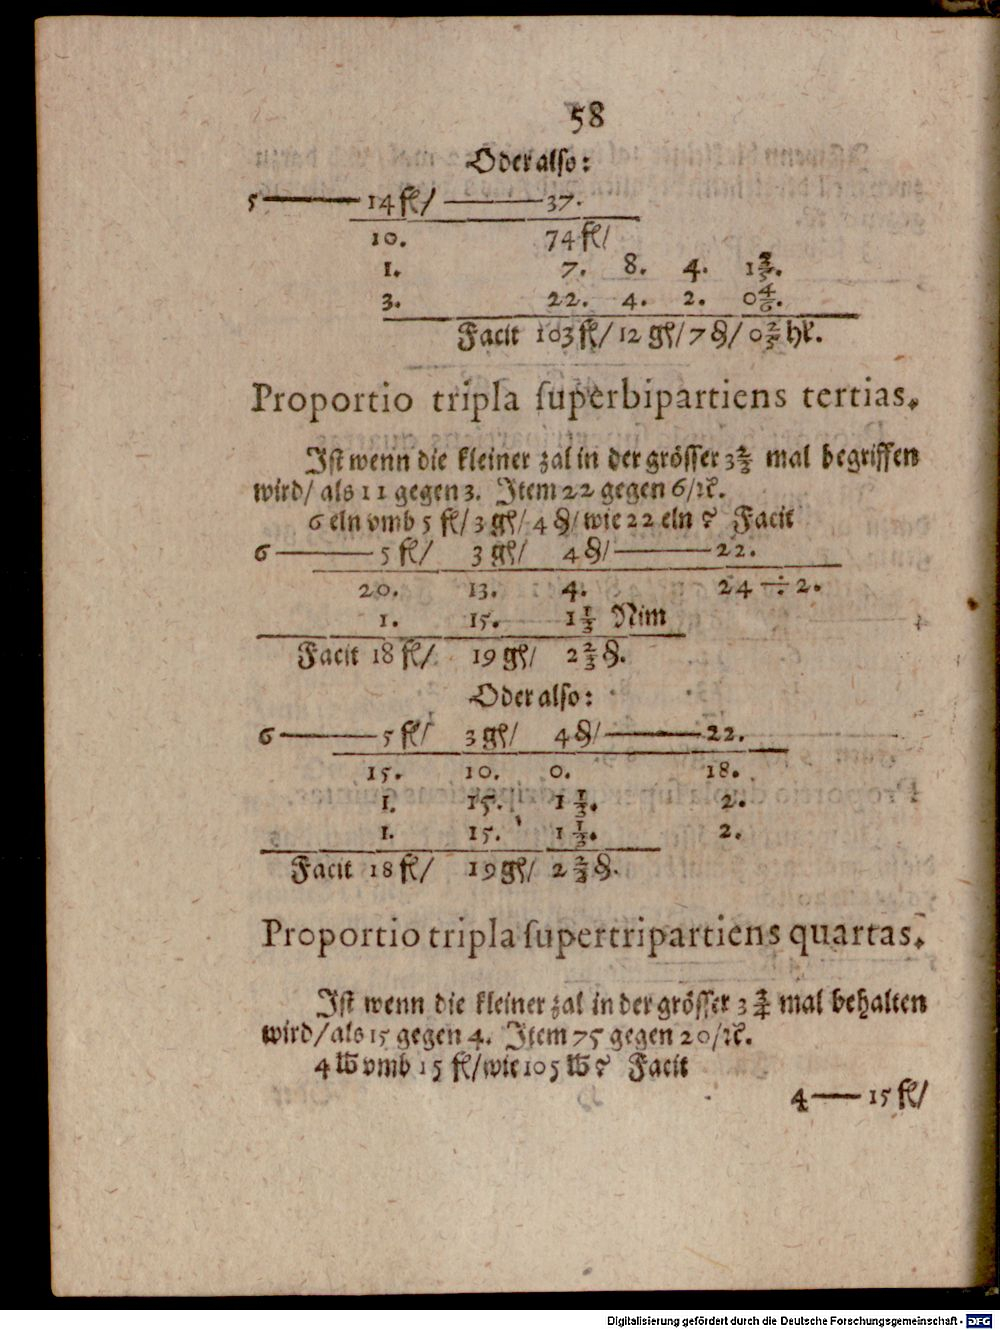 58
Oder also:
5 —— 14 fl/ —— 37.
10. 74 fl/
1. 7. 8. 4. 1 3/5.
3. 22. 4. 2. 0 4/6.
Facit 103 fl/ 12 gl/ 7 ₰/ 0 2/5 hl.
Proportio tripla ſuperbipartiens tertias.
Iſt wenn die kleiner zal in der gröſſer 3 2/3 mal begriffen
wird/ als 11 gegen 3. Item 22 gegen 6/ ꝛc.
6 eln vmb 5 fl/ 3 gl/ 4 ₰/ wie 22 eln? Facit
6 —— 5 fl/ 3 gl/ 4 ₰/ —— 22.
20. 13. 4. 24 ÷ 2.
1. 15. 1 1/3 Nim
Facit 18 fl/ 19 gl/ 2 2/3 ₰.
Oder alſo:
6 —— 5 fl/ 3 gl/ 4 ₰/ —— 22.
15. 10. 0. 18.
1. 15. 1 1/3. 2.
1. 15. 1 1/3. 2.
Facit 18 fl/ 19 gl/ 2 2/3 ₰.
Proportio tripla ſupertripartiens quartas.
Iſt wenn die kleiner zal in der gröſſer 3 3/4 mal behalten
wird/ als 15 gegen 4. Item 75 gegen 20/ ꝛc.
4 ℔ vmb 15 fl/ wie 105 ℔? Facit
4 —— 15 fl/
Digitalisierung gefördert durch die Deutsche Forschungsgemeinschaft - DFG